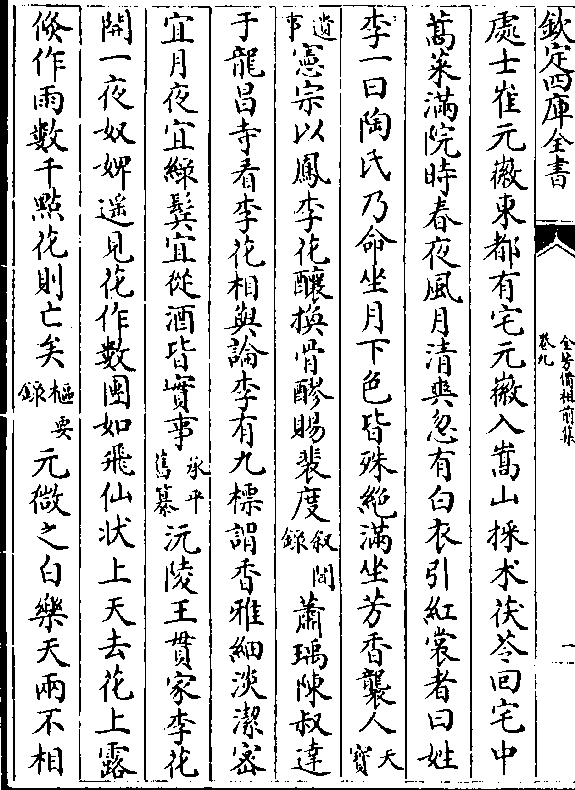 欽定四庫全書
全芳備祖前集
卷九
一
處士崔元微東都有宅元微入嵩山採朮茯苓回宅中
蒿萊滿院時春夜風月清爽忽有白衣引紅裳者曰姓
李一曰陶氏乃命坐月下色皆殊絶滿坐芳香襲人天寳
遺事憲宗以鳳李花釀換骨醪賜裴度叙聞録蕭瑀陳叔達
于龍昌寺看李花相與論李有九標謂香雅細淡潔宻
宜月夜宜綠鬢宜從酒皆實事承平舊纂沅陵王貫家李花
開一夜奴婢遥見花作數團如飛仙狀上天去花上露
倐作雨數千點花則亡矣樞要録元微之白樂天兩不相